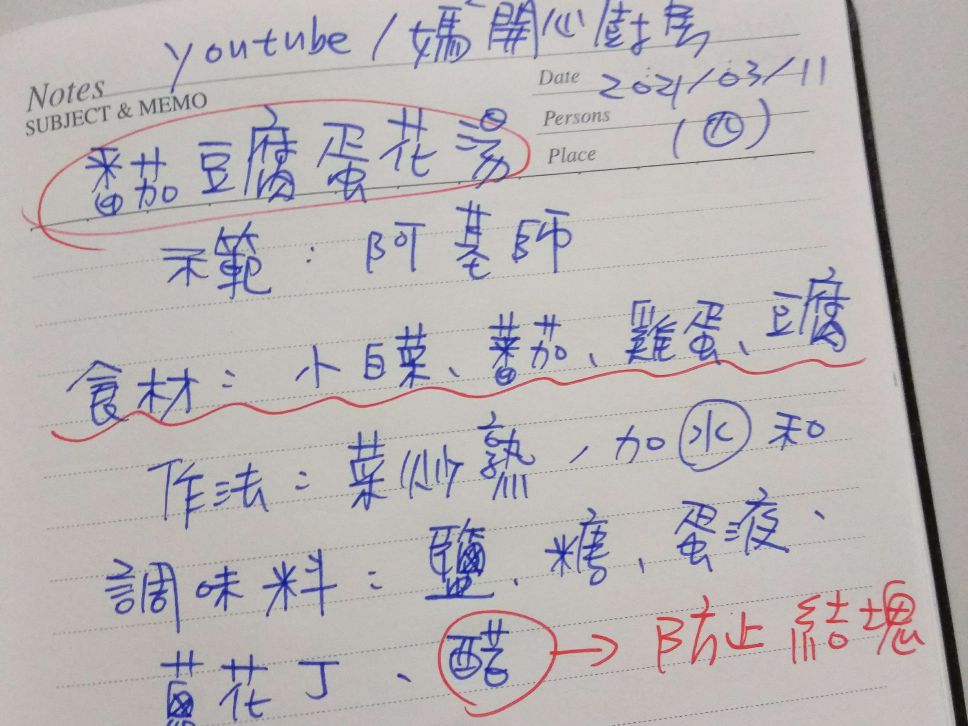 youtube/媽開心廚房
Notes
SUBJECT & MEMO
Date 2021/03/11
Persons (四)
Place
蕃茄豆腐蛋花湯
示範：阿基師
食材：小白菜、蕃茄、雞蛋、豆腐
作法：菜炒熟，加水和
調味料：鹽、糖、蛋液、
蔥花丁、醋→防止結塊